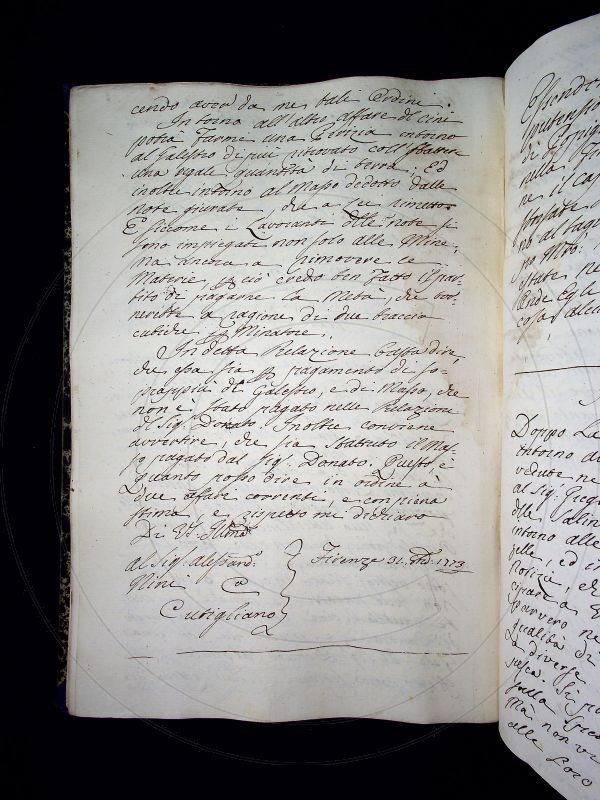 cendo aver da me tali Ordini.
Intorno all'altro affare di cini
potrà farmi una Perizia intorno
al Galestro di più ritrovato coll'sbattere
una ugale quantità di terra, Ed
inoltre intorno al Masso dedotto dalle
note giurate, che a Lei rimetto
E siccome i Lavoranti delle note si
sono impiegati non solo alle Mine,
ma ancora a rimovere le
Materie, per ciò credo ben fatto il par-
tito di pagarne la Metà, che tor-
nerebbe a ragione di due braccia
cubiche per Minatore.
In detta Relazione basta dire,
che essa sia per pagamento di so-
prappiù di Galestro, e di Masso, che
non è stato pagato nelle Relazione
del Sig. Donato. Inoltre conviene
avvertire, che sia sbattuto il Mas-
so pagato dal Sig. Donato. Questo è
quanto posso dire in ordine à
due affari correnti, e con piena
stima, e rispetto mi dichiaro
Di VS. Illma
al Sig. Alessandro
Nini a
Cutigliano
Firenze 31. 1773
Essendo
pretensio
di
nella
ne il ca
no al tag
estate ne
cosa alcu
Doppo La
intorno a
vedute ne
al Sig.
delle Salin
intorno alle
pelle, ed i
Notizie, ch
parvero ne
qualità di
La diverse
Si po
dalla
Mà non v
alle Loro